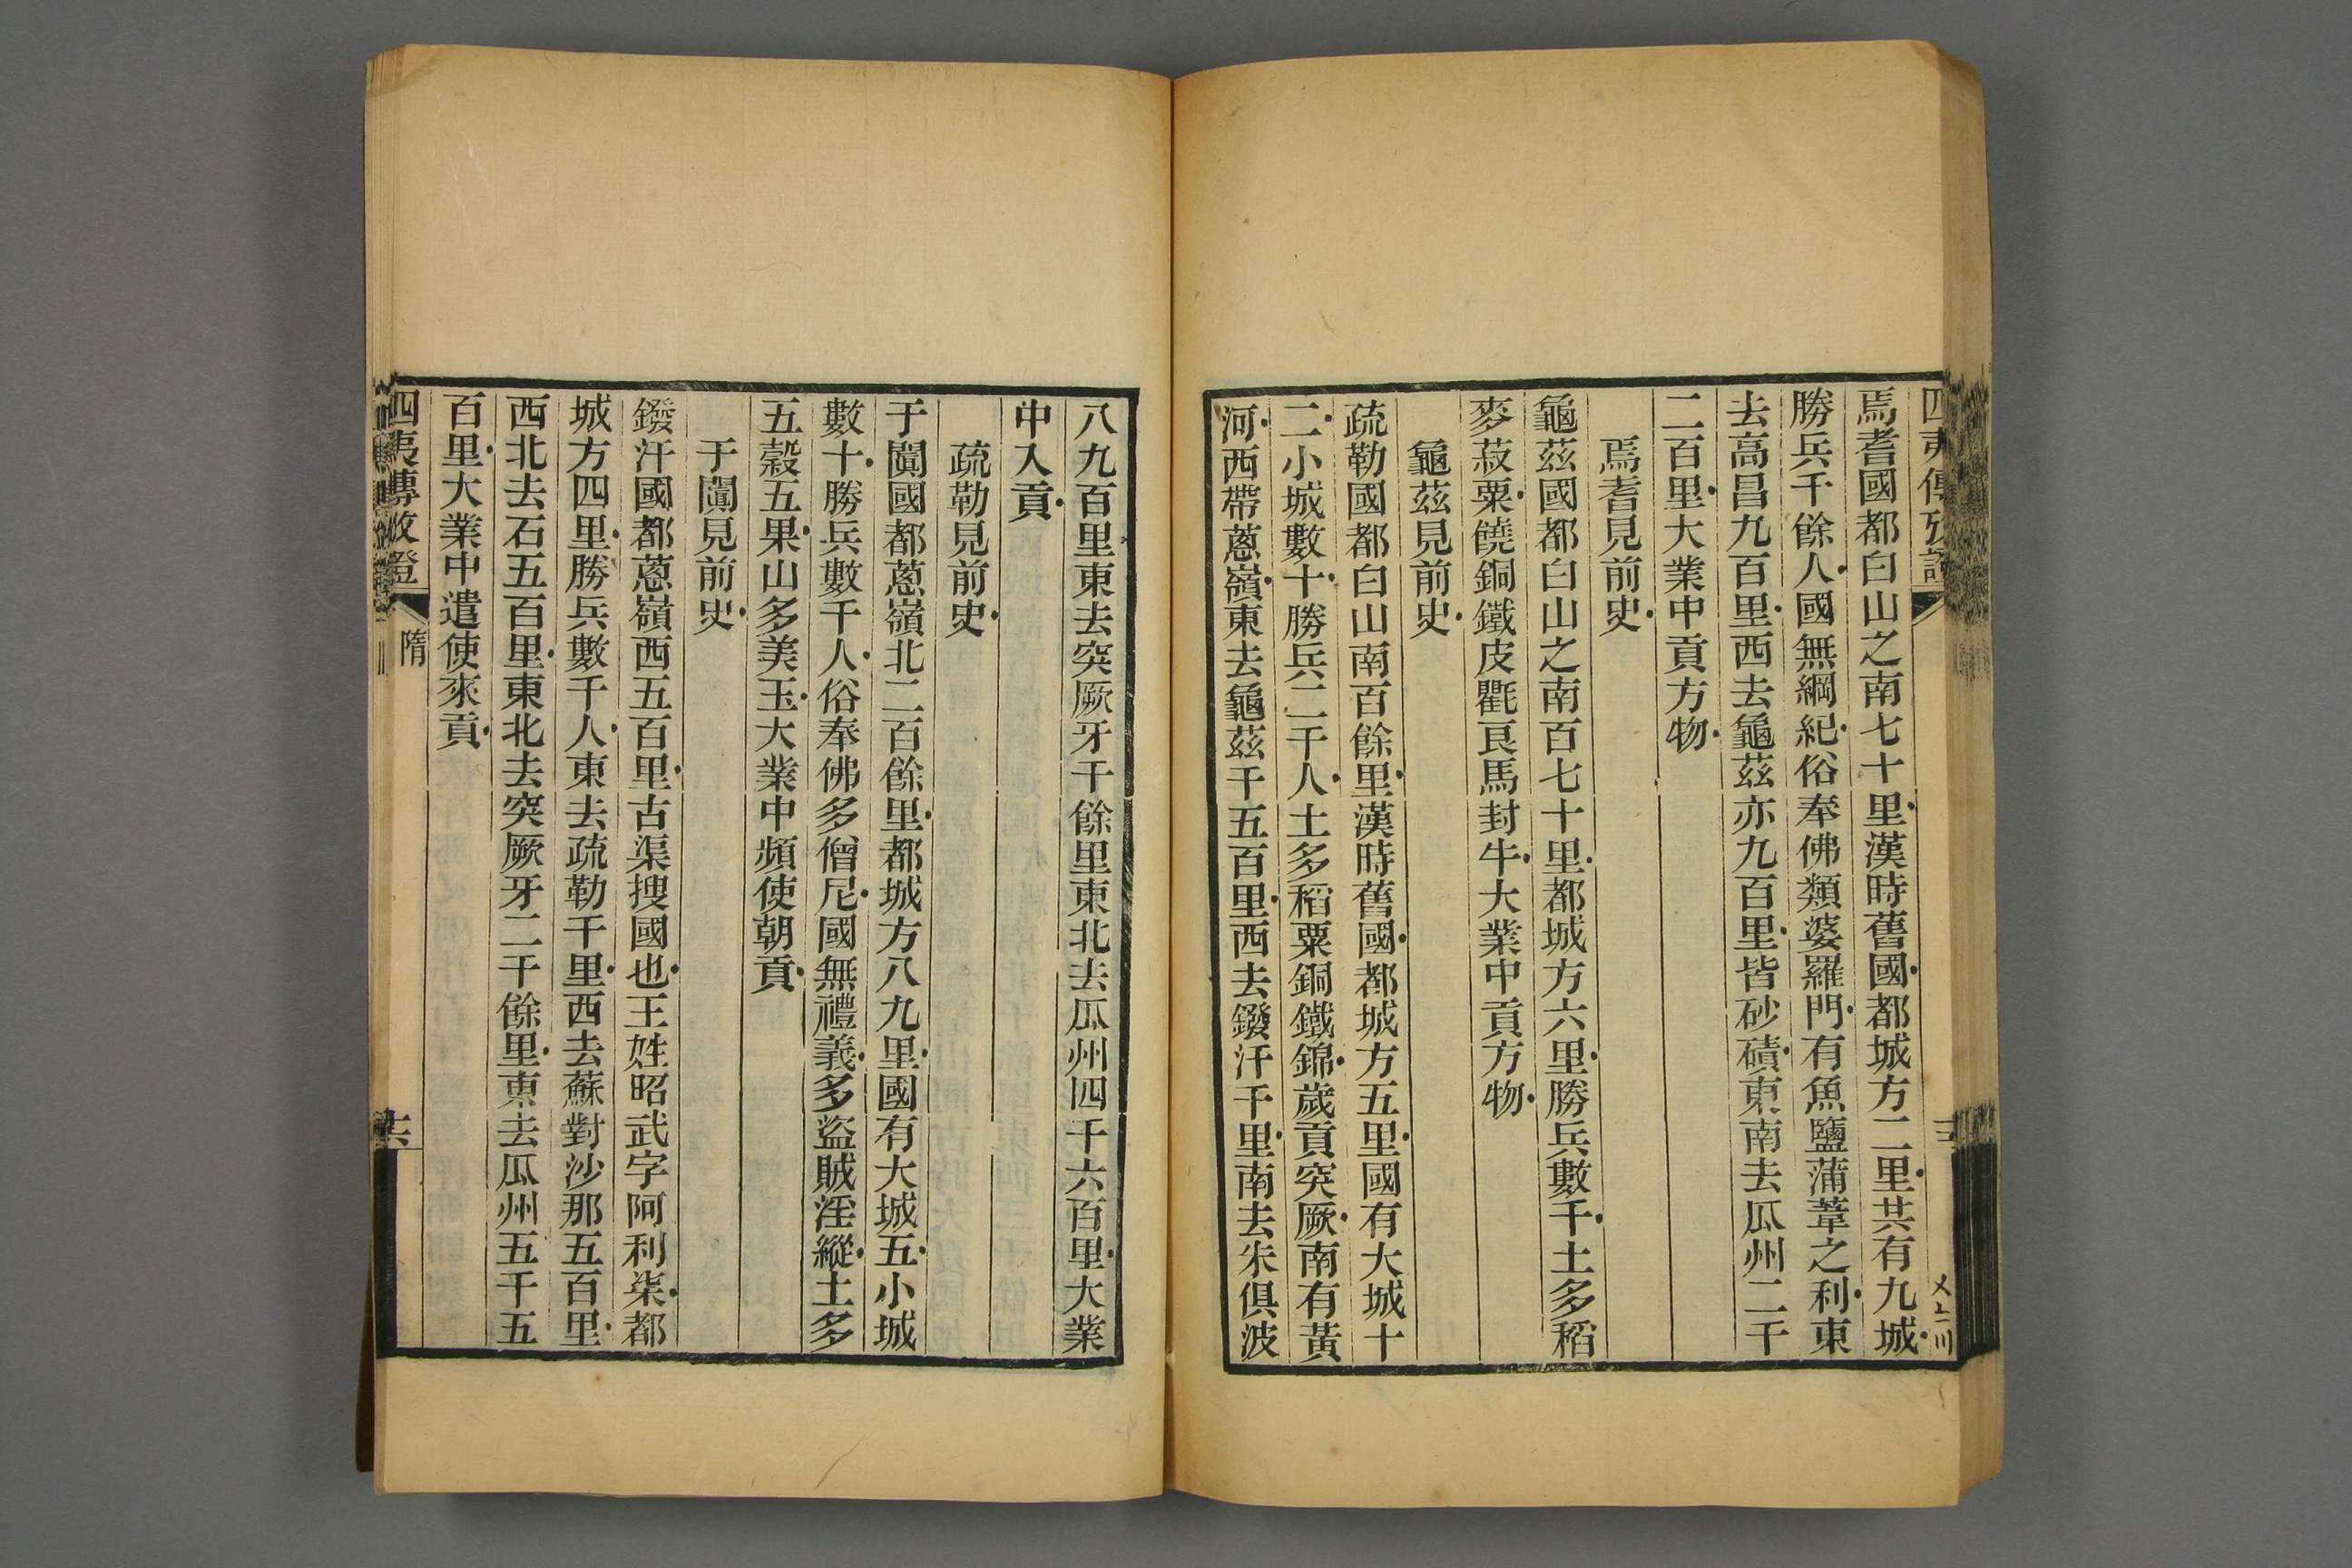 焉耆國都白山之南七十里漢時舊國都城方二里共有九城
勝兵千餘人國無綱紀俗奉佛類婆羅門有魚鹽蒲葦之利東
去高昌九百里西去龜茲亦九百里皆砂磧東南去瓜州二千
二百里大業中貢方物
焉耆見前史
龜茲國都白山之南百七十里都城方六里勝兵數千土多稻
麥菽粟饒銅鐵皮氍良馬封牛大業中貢方物
龜茲見前史
疏勒國都白山南百餘里漢時舊國都城方五里國有大城十
二小城數十勝兵二千人土多稻粟銅鐵錦歲貢突厥南有黃
河西帶蔥嶺東去龜茲千五百里西去鏺汗千里南去朱俱波
八九百里東去突厥牙千餘里東北去瓜州四千六百里大業
中入貢
疏勒見前史
于闐國都蔥嶺北二百餘里都城方八九里國有大城五小城
數十勝兵數千人俗奉佛多僧尼國無禮義多盜賊淫縱土多
五穀五果山多美玉大業中頻使朝貢
于闐見前史
鏺汗國都蔥嶺西五百里古渠搜國也王姓昭武字阿利柒都
城方四里勝兵數千人東去疏勒千里西去蘇對沙那五百里
西北去石五百里東北去突厥牙二千餘里東去瓜州五千五
百里大業中遣使來貢
四夷傳攷證
隋